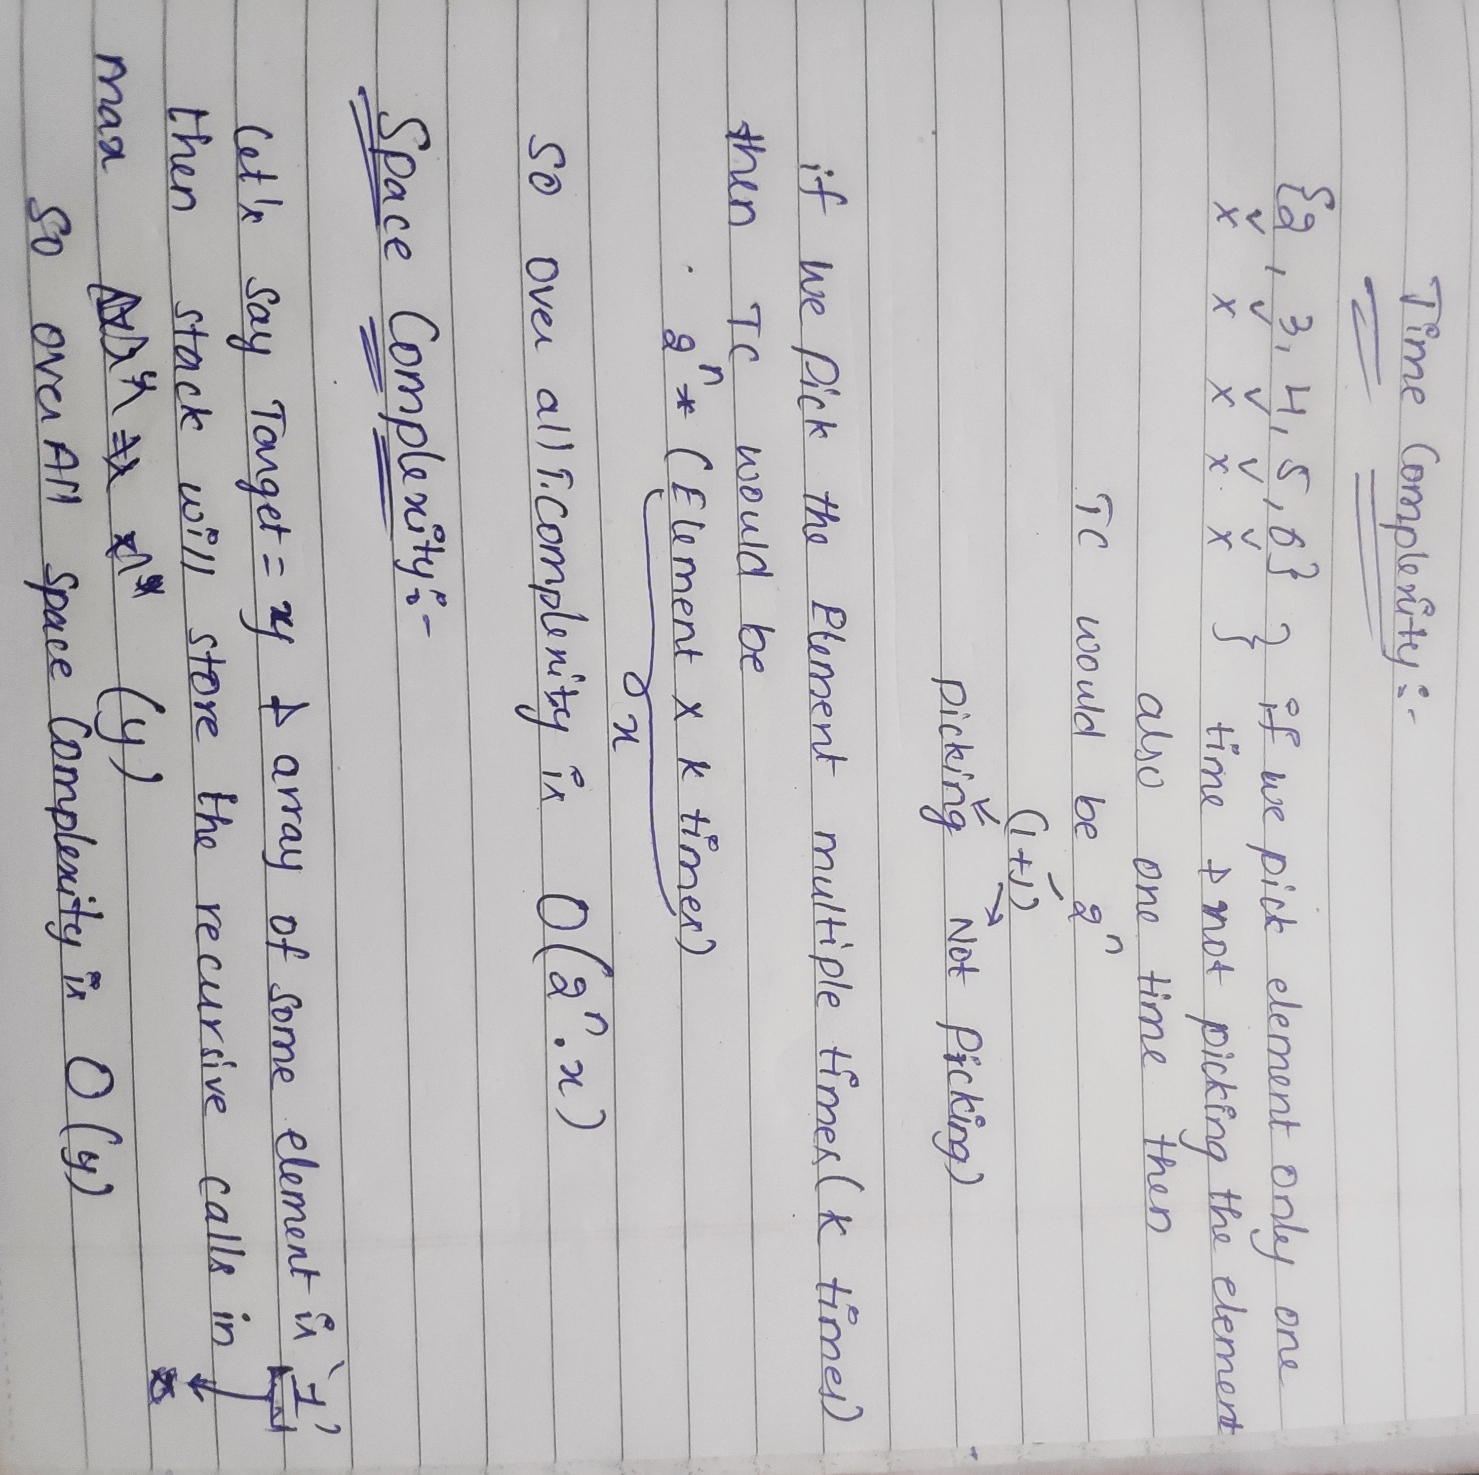 Time Complexity:-
{2, 3, 4, 5, 6} } if we pick element only one
✓ ✓ ✓ ✓ ✓
x x x x x } time & not picking the element
also one time then
TC would be 2^n
(1+1)
picking Not Picking)
if we Pick the Element multiple times (k times)
then TC would be
2^n * (Element x k times)
x
so over all T.Complexity is O(2^n . x)
Space Complexity:-
Let's say Target = y & array of some element is '1'
then stack will store the recursive calls in
max (y)
so overAll space Complexity is O(y)